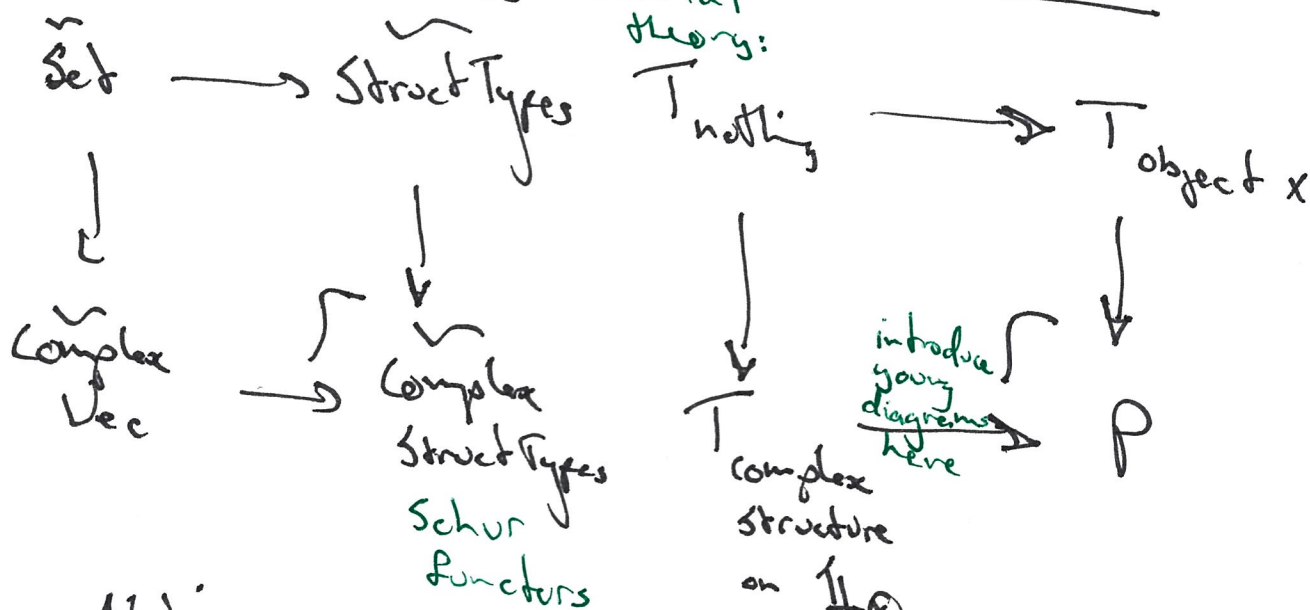 theory:
Set → StructTypes
T nothing → T object x
Complex
Vec
Complex
StructTypes
Schur
functors
T complex
structure
on
introduce
young
diagrams
here
P